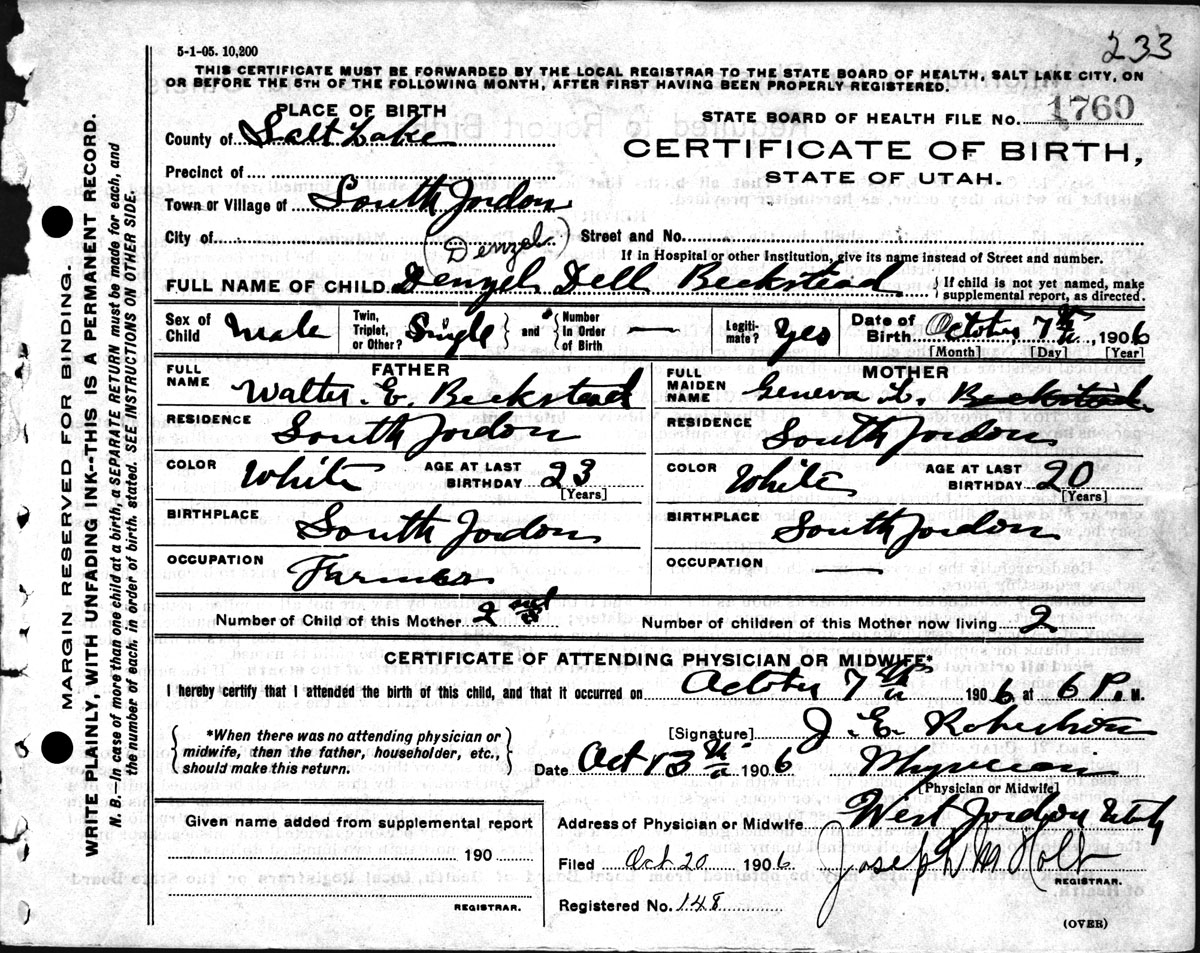 5-1-05. 10,200
233
THIS CERTIFICATE MUST BE FORWARDED BY THE LOCAL REGISTRAR TO THE STATE BOARD OF HEALTH, SALT LAKE CITY, ON
OR BEFORE THE 5TH OF THE FOLLOWING MONTH, AFTER FIRST HAVING BEEN PROPERLY REGISTERED.
PLACE OF BIRTH
STATE BOARD OF HEALTH FILE NO. 1760
County of Salt Lake
CERTIFICATE OF BIRTH,
STATE OF UTAH.
Precinct of
Town or Village of South Jordon
City of (Denzel) Street and No.
If in Hospital or other Institution, give its name instead of Street and number.
FULL NAME OF CHILD Denzel Dell Beckstead { If child is not yet named, make
supplemental report, as directed.
Sex of Child Male Twin, Triplet, or Other? Single } and { Number in Order of Birth — Legiti-mate? Yes Date of Birth October 7th, 1906
[Month] [Day] [Year]
FATHER
FULL NAME Walter E. Beckstead
RESIDENCE South Jordon
COLOR White AGE AT LAST BIRTHDAY 23
[Years]
BIRTHPLACE South Jordon
OCCUPATION Farmer
MOTHER
FULL MAIDEN NAME Geneva L. Beckstead
RESIDENCE South Jordon
COLOR White AGE AT LAST BIRTHDAY 20
[Years]
BIRTHPLACE South Jordon
OCCUPATION —
Number of Child of this Mother 2nd Number of children of this Mother now living 2
CERTIFICATE OF ATTENDING PHYSICIAN OR MIDWIFE*
I hereby certify that I attended the birth of this child, and that it occurred on October 7th 1906, at 6 P. M.
*When there was no attending physician or
midwife, then the father, householder, etc.,
should make this return.
[Signature] J. E. Robertson
Date Oct 13th 1906
[Physician or Midwife]
Given name added from supplemental report
190
REGISTRAR.
Address of Physician or Midwife West Jordon Utah
Filed Oct. 20 1906 Joseph M Holt
REGISTRAR.
Registered No. 148
(OVER)
MARGIN RESERVED FOR BINDING.
WRITE PLAINLY, WITH UNFADING INK--THIS IS A PERMANENT RECORD.
N. B.—In case of more than one child at a birth, a SEPARATE RETURN must be made for each, and
the number of each, in order of birth, stated. SEE INSTRUCTIONS ON OTHER SIDE.